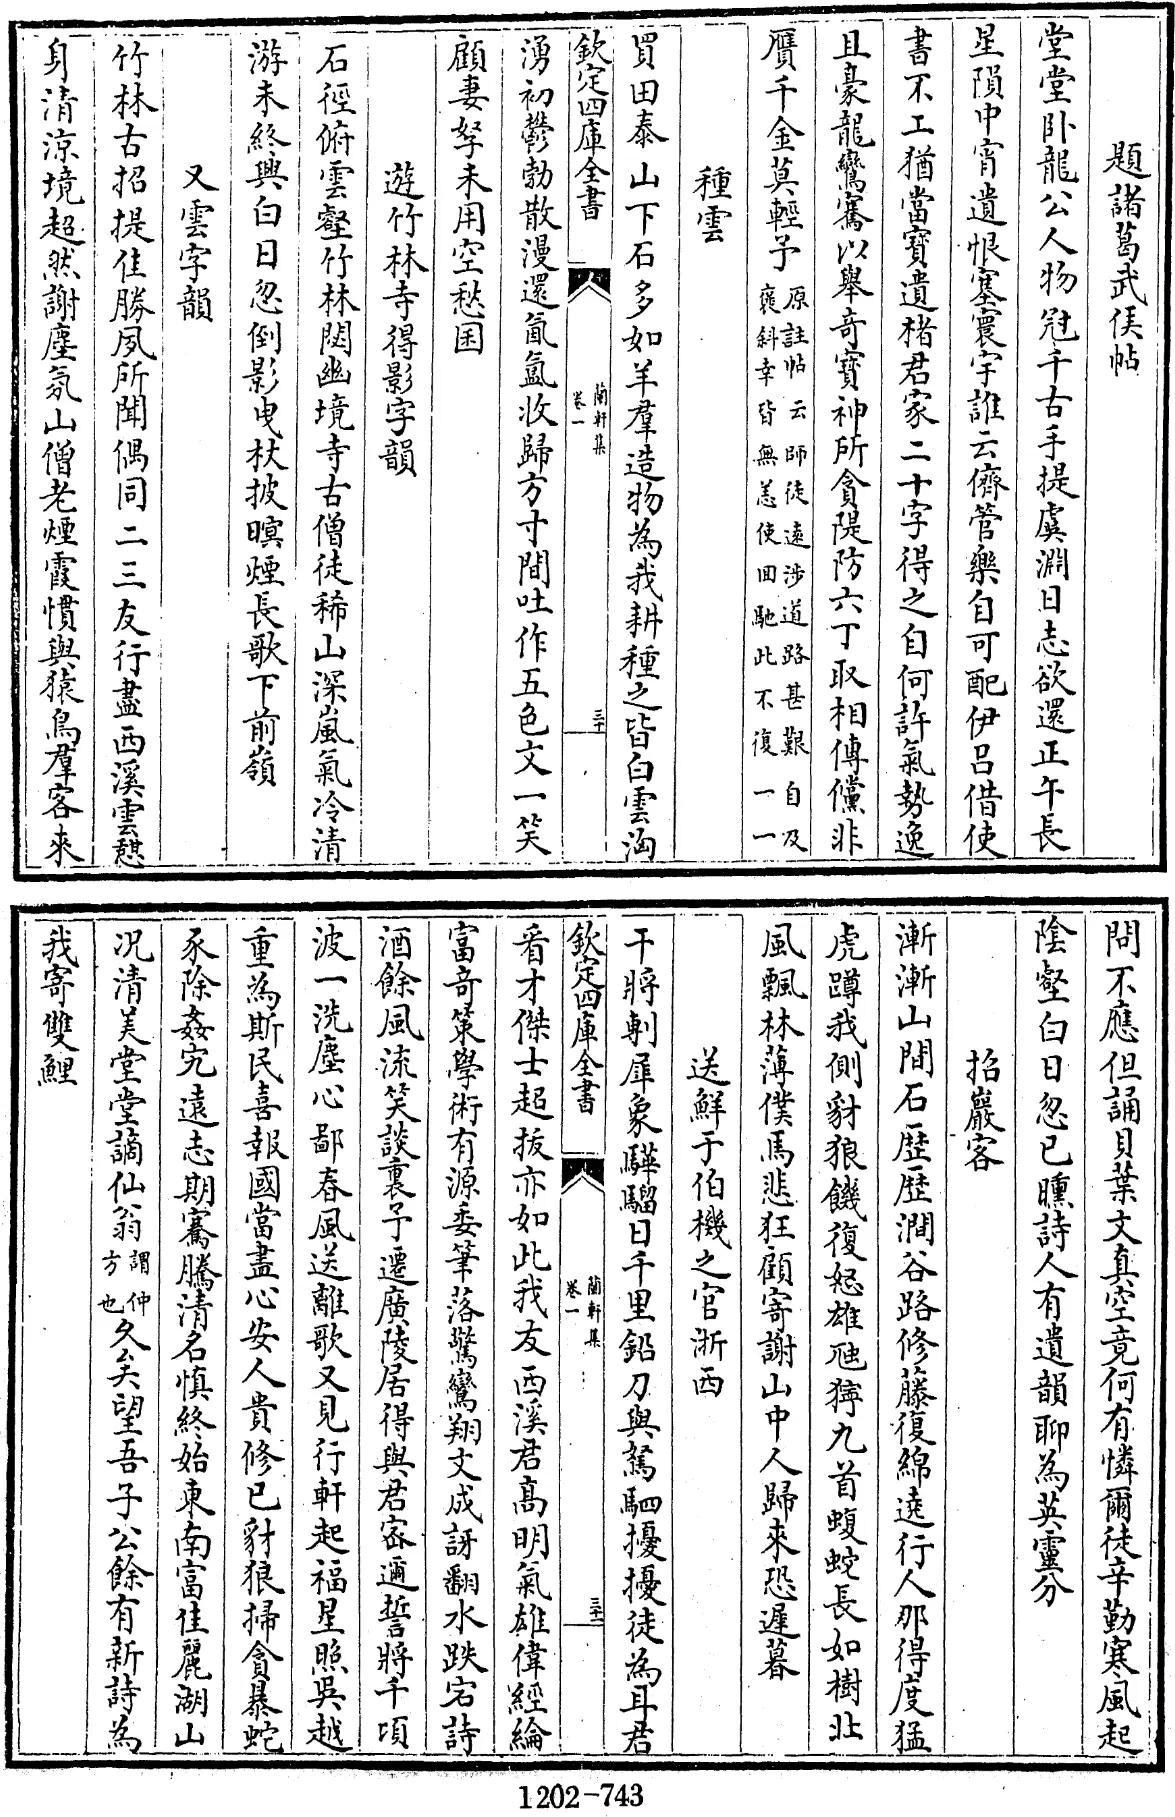 題諸葛武侯帖
堂堂卧龍公人物冠千古手提虞淵日志欲還正午長
星隕中宵遺恨塞寰宇誰云儕管樂自可配伊吕借使
書不工猶當寶遺楮君家二十字得之自何許氣勢逸
且豪龍鸞騫以舉奇寶神所貪隄防六丁取相傳儻非
贋千金莫輕予原註帖云師徒遠涉道路甚艱自及
褒斜幸皆無恙使回馳此不復一一
種雲
買田泰山下石多如羊羣造物為我耕種之皆白雲洶
欽定四庫全書
蘭軒集
卷一
三十
湧初鬱勃散漫還氤氳收歸方寸間吐作五色文一笑
顧妻孥未用空愁囷
遊竹林寺得影字韻
石徑俯雲壑竹林閟幽境寺古僧徒稀山深嵐氣冷清
游未終興白日忽倒影曳杖披暝煙長歌下前嶺
又雲字韻
竹林古招提佳勝夙所聞偶同二三友行盡西溪雲憇
身清涼境超然謝塵氛山僧老煙霞慣與猿鳥羣客來
問不應但誦貝葉文真空竟何有憐爾徒辛勤寒風起
陰壑白日忽已曛詩人有遺韻聊為英靈分
招巖客
漸漸山間石歴歴澗谷路修藤復綿遶行人那得度猛
虎蹲我側豺狼饑復怒雄虺獰九首蝮蛇長如樹北
風飄林薄僕馬悲狂顧寄謝山中人歸來恐遲暮
送鮮于伯機之官浙西
干將剸犀象驊騮日千里鉛刀與駑駟擾擾徒為耳君
欽定四庫全書
蘭軒集
卷一
三十一
看才傑士超拔亦如此我友西溪君髙明氣雄偉經綸
富奇策學術有源委筆落驚鸞翔文成訝翻水跌宕詩
酒餘風流笑談裏予遷廣陵居得與君宻邇誓將千頃
波一洗塵心鄙春風送離歌又見行軒起福星照吳越
重為斯民喜報國當盡心安人貴修已豺狼掃貪暴蛇
豕除姦宄遠志期騫騰清名慎終始東南富佳麗湖山
况清美堂堂謫仙翁謂仲
方也久矣望吾子公餘有新詩為
我寄雙鯉
1202-743